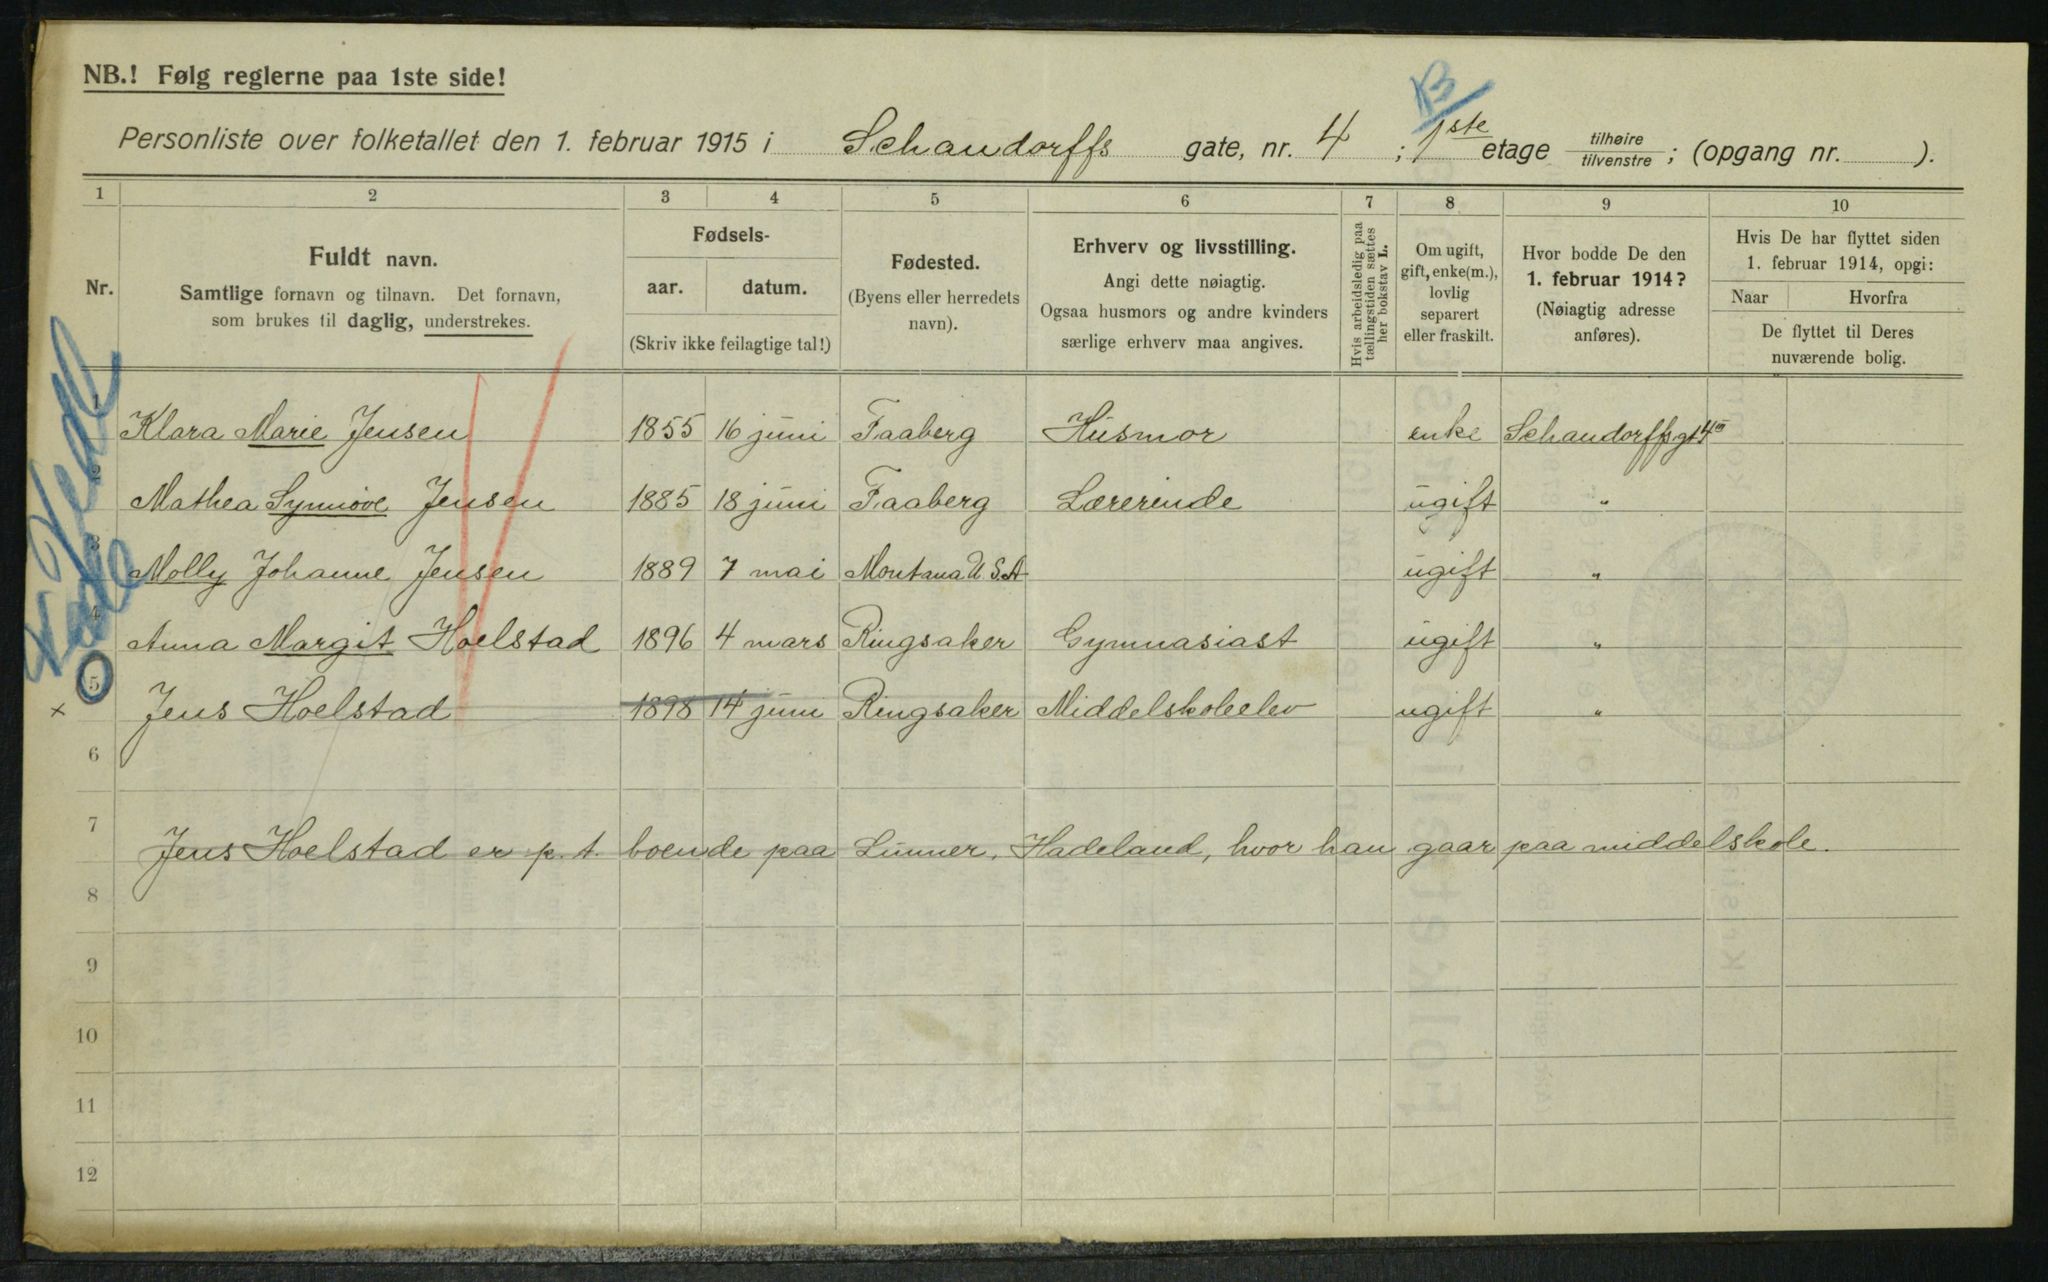 NB.! Følg reglerne paa 1ste side!
B
Personliste over folketallet den 1. februar 1915 i Schandorffs gate, nr. 4 ; 1ste etage tilhøire/tilvenstre ; (opgang nr. ).
1 2 3 4 5 6 7 8 9 10
Nr.
Fuldt navn.
Samtlige fornavn og tilnavn. Det fornavn,
som brukes til daglig, understrekes.
Fødsels-
aar. datum.
(Skriv ikke feilagtige tal!)
Fødested.
(Byens eller herredets
navn).
Erhverv og livsstilling.
Angi dette nøiagtig.
Ogsaa husmors og andre kvinders
særlige erhverv maa angives.
Hvis arbeidsledig paa
tællingstiden sættes
her bokstav L.
Om ugift,
gift, enke(m.),
lovlig
separert
eller fraskilt.
Hvor bodde De den
1. februar 1914?
(Nøiagtig adresse
anføres).
Hvis De har flyttet siden
1. februar 1914, opgi:
Naar Hvorfra
De flyttet til Deres
nuværende bolig.
1 Klara Marie Jensen 1855 16 juni Faaberg Husmor enke Schandorffsgt 4III
2 Mathea Synnöve Jensen 1885 18 juni Faaberg Lærerinde ugift "
3 Molly Johanne Jensen 1889 7 mai Montana U.S.A ugift "
4 Anna Margit Hoelstad 1896 4 mars Ringsaker Gymnasiast ugift "
5 x Jens Hoelstad 1898 14 juni Ringsaker Middelskoleelev ugift "
6
7 Jens Hoelstad er p.t. boende paa Lunner, Hadeland, hvor han gaar paa middelskole.
8
9
10
11
12